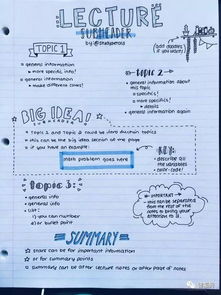 LECTURE
SUBHEADER
by: @studypetals
(add doodles if you want!)
TOPIC 1
→ general information
→ more specific info!
→ general information
→ make different cores!
TOPIC 2
→ general information about this topic
→ specifics!
→ more specifics!
→ details
→ general information again
BIG IDEA!
→ Topic 1 and Topic 2 must be
→ this can be the big idea section of the page
→ if you have an example:
math problem goes here
KEY:
- describe all the variables
- color-code!
TOPIC 3:
→ general info
→ general info
→ list:
1) you can number
•) or bullet point
IMPORTANT
→ this can be separated from the rest of the notes to bring your attention to it
SUMMARY
☆ stars can be for important information
☆ or for summary points
☆ summary can be after lecture notes or after page of notes